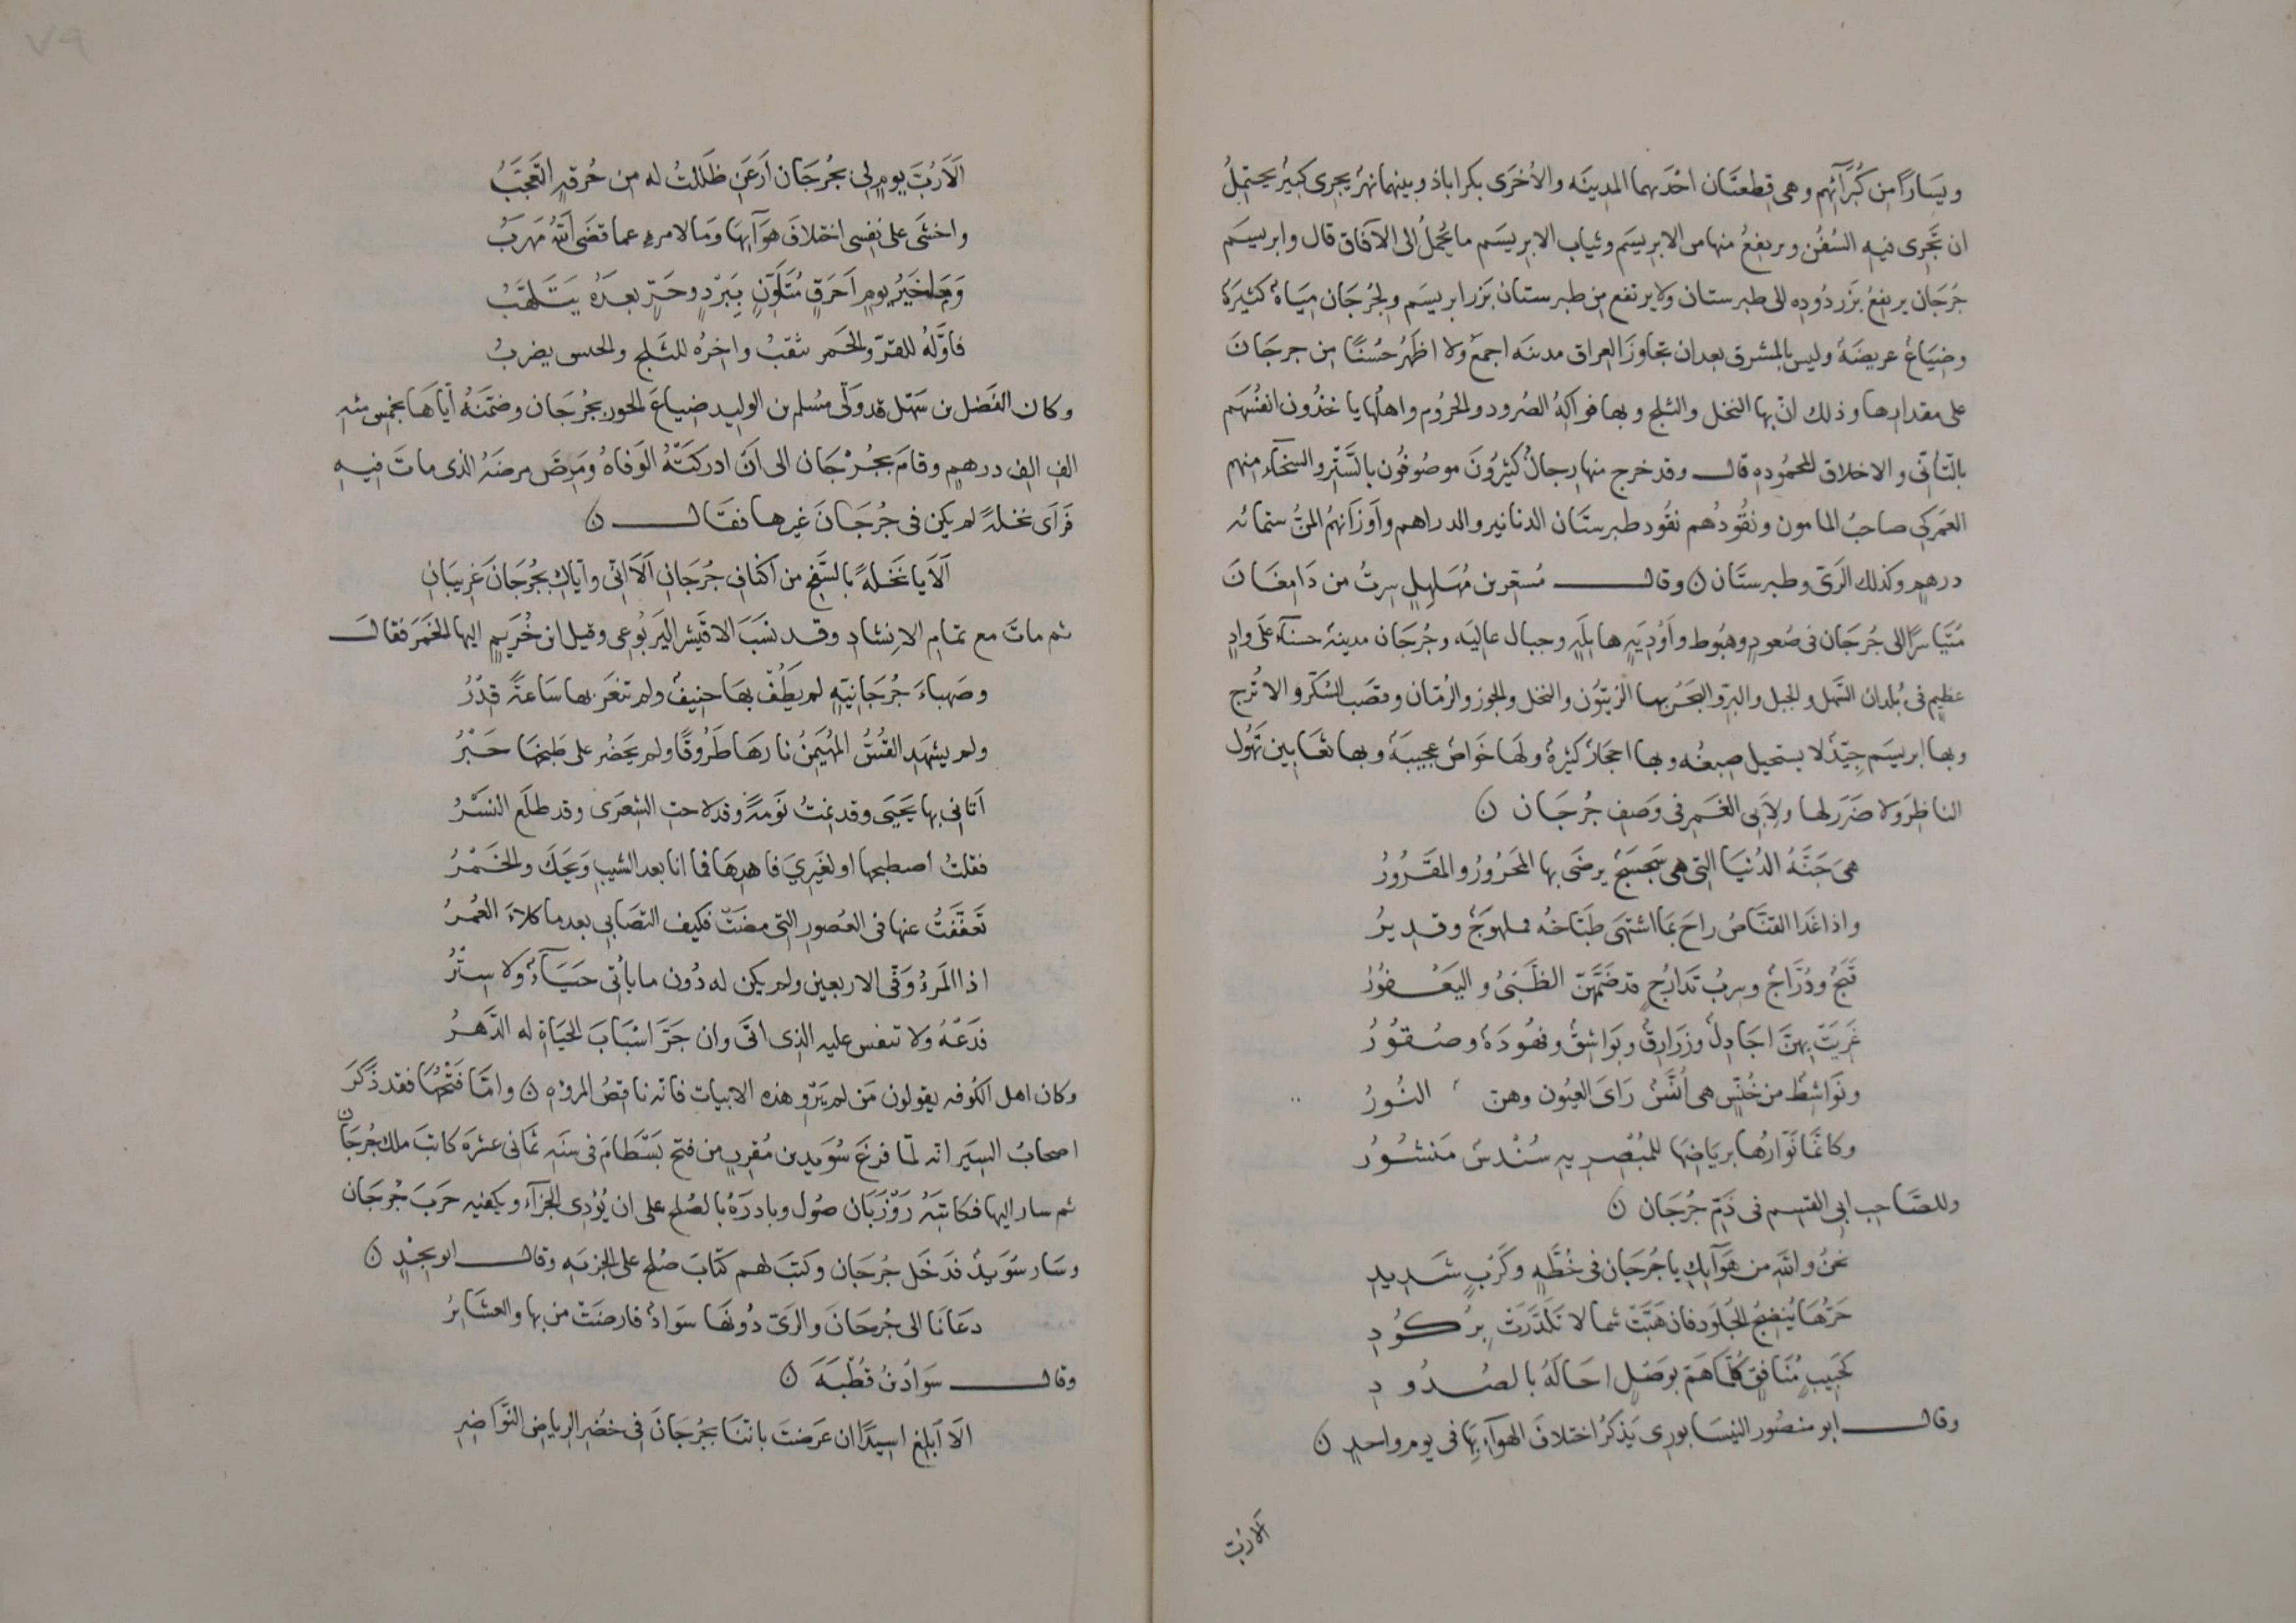 ويسَاراً مِن كُبرَآئهِم وهى قِطعتَان احْدَيهما المدينَه والأخرَى بكراباذ وبينهما نهرٌ يجرِى كبيرٌ يحتمِلُ
ان تَجرِى فيهِ السُفُن ويرتفِعُ منها من الابريسَم وثياب الابريسَم ما يُحمَلُ الى الآفاق قال وابريسَم
جُرجَان يرتفِعُ بَزر دُودِه الى طبرستان ولا يرتفع مِن طبرستان بَزر ابريسَم ولجُرجَان ميَاهٌ كثيرَةٌ
وضِيَاعٌ عريضَةٌ وليس بالمشرق بعد ان تجاوزَ العراق مدينَه اجمعُ ولا اظهَرُ حُسنًا مِن جرجَانَ
على مقدارها وذلك انّ بها النخل والثلج وبها فواكِهُ الصُرود والجرُوم واهلُها ياخذُون انفُسَهم
بالتّأتّى والاخلاق المحمُودِه قال وقد خرج منها رِجالٌ كثيرُونَ موصُوفُون بالسَّتْر والسخَآء منهم
العَمركى صاحبُ المامون ونقُودُهم نقُود طبرستَان الدنانير والدراهم وأوزَانهُم المنُّ ستمائه
درهمٍ وكذلك الرىّ وطبرستَان ن وقال مُسعِر بن مُهَلهِلٍ سِرتُ من دَامِغَانَ
مُتيَاسرًا الى جُرجَان فى صُعودٍ وهبُوط وأوْدِيَهٍ هايلَهٍ وجبال عاليَه وجُرجَان مدينةٌ حسنآءُ على وادٍ
عظيمٍ فى بُلدان السَّهل والجبل والبرّ والبَحْر بها الزيتُون والنخل والجوز والرُمّان وقصَب السُكّر والاترج
وبها ابريسَم جيّدٌ لا يستحيل صِبغُه وبها احجَارٌ كثيرَةٌ ولهَا خَواصٌ عجيبَةٌ وبها ثعَابين تهُول
الناظِرَ ولا ضَرَر لها ولأبى الغَمرِ فى وَصفِ جُرجَان ن
هىَ جَنّةُ الدُنيَا التِى هى سَجسَجٌ يرضَى بها المَحرُورُ والمقرُورُ
واذا غَدا القنّاصُ راحَ بمَا اشتهَى طَبّاخُه فملهوَجٌ وقدِيرُ
قَبَجٌ ودُرّاجٌ وسِربُ تَدارُجٍ قد ضَمَّهنّ الظَبْىُ واليَعْفُورُ
غَرِيَتْ بِهِنّ اجَادِلٌ وزَرارِقٌ وبَوَاشِقٌ وفهُودَةٌ وصُقوُرُ
ونَوَاشِطٌ من خُنّسٍ هى اُنَّسٌ رَاىَ العيُون وهنّ النُورُ
وكانَّمَا نَوّارُها برِيَاضِهَا للمُبْصِرِيهِ سُنْدسٌ مَنشُورُ
وللصَّاحِبِ ابى القسِم فى ذَمِّ جُرجَان ن
نَحنُ واللّهِ من هَوَآئِكِ يا جُرجَان فى خُطّهٍ وكَرْبٍ شَدِيدِ
حَرُّهَا يُنضِجُ الجُلُودَ فان هَبَّتْ شمالا تكَدَّرَتْ بِرُكُودِ
كَحَبِيبٍ مُنَافِقٍ كُلّمَا هَمّ بوَصْلٍ احَالَهُ بالصُدُودِ
وقال ابو منصُور النيسَابورِى يَذكرُ اختلافَ الهوآءِ بِهَا فى يومٍ واحدٍ ن
الارُبّ
اَلَا رُبّ يومٍ لِى بجُرجَان اَرعَنٍ ظَلَلتُ له مِن حُرقِهٍ اتعجَّبُ
واخشَى على نفسِى اختلافَ هوَآئِهَا ومَا لامرءٍ عما قضَى اللّهُ مهرَبُ
وَمَا خَيرُ يومٍ اَحرَقٍ مُتلَوّنٍ بِبَرْدٍ وحَرٍّ بعدَهُ يتَلهَّبُ
فاوّلهُ للقرّ والجَمر ثقبٌ واخِرُه للثلج والخيش يضربُ
وكان الفَضل بن سَهل قد ولّى مُسلم بن الوليد ضياعَ الجور بجُرجَان وضمّنهُ ايّاهَا بخمسِ مئهِ
الف الف درهمٍ وقامَ بجُرْجَان الى اَن ادركَتْهُ الوَفاهُ ومَرِضَ مرضَهُ الذى ماتَ فيهِ
فَرَاَى نخلةً لم يكن فى جُرجَانَ غيرها فقَال ن
اَلَا يا نَخْلةً بالسَّفحِ من اكنافِ جُرجَانِ اَلَا اِنّى واِيّاكِ بجُرجَانَ غرِيبَانِ
ثم ماتَ مع تمَام الانشادِ وقد نسَبَ الاقيشر اليَربُوعى وقيل ابن خُرَيمٍ اليها الخَمرَ فقال
وصَهباءَ جُرجَانِيّهٍ لم يَطُفْ بهَا حنِيفٌ ولم تنغَر بها سَاعةً قِدْرُ
ولم يشهَدِ القُسُّ المُهَيمِنُ نارهَا طَرُوقًا ولم يَحضُر على طبخِهَا حَبْرُ
اَتانى بها يَحيَى وقد نِمتُ نَومةً وقد لاحت الشِعرَى وقد طلَع النَسْرُ
فقلتُ اصطبحها او لغَيرِىَ فاهدِهَا فما انا بعد الشيبِ وَيحَكَ والخَمْرُ
تَعَفّفتُ عنها فى العصُورِ التِى مضَتْ فكيف التصَابِى بعد ما كلاءَ العُمرُ
اذا المَرءُ وَفّى الاربعين ولم يكن له دُون ما يأتى حَيَآءٌ ولا سِتْرُ
فدَعْهُ ولا تنفس عليه الذى اتَى وان جَرّ اسْبَابَ الحيَاةِ له الدَّهرُ
وكان اهل الكُوفه يقولون مَن لم يَرْوِ هذه الابيات فانّه ناقِصُ المروّهِ ن وامّا فَتْحُهَا فقد ذَكَرَ
اصحابُ السِيَر انّه لمّا فرغَ سُوَيد بن مُقرِن من فتح بَسْطامَ فى سَنَه ثمَانى عشرَة كاتَبَ ملك جُرجَان
ثم سار اليها فكاتبَهُ رَوْزَبَان صُول وبادرَهُ بالصُلحِ على ان يُؤدِى الجزآء ويكفيه حَربَ جُرجَان
وسَار سُوَيدٌ فدَخَل جُرجَان وكتبَ لهم كتابَ صُلحٍ على الجزيَهِ وقال ابو بجيْدٍ ن
دعَانَا الى جُرجَانَ والرىّ دُونهَا سوَادٌ فارضَتْ من بها والعشَايرُ
وقال سَوادُ بنُ قُطْبَهَ ن
الَا اَبلِغ اسِيدًا ان عَرضتَ باننَا بجُرجَانَ فِى خضرِ الرياضِ النَّواضِرِ